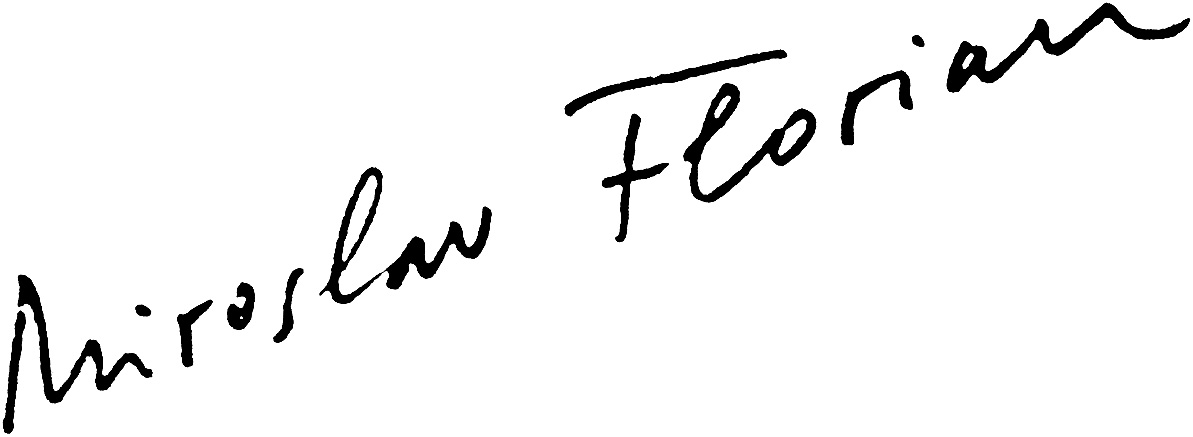 Miroslav Florian